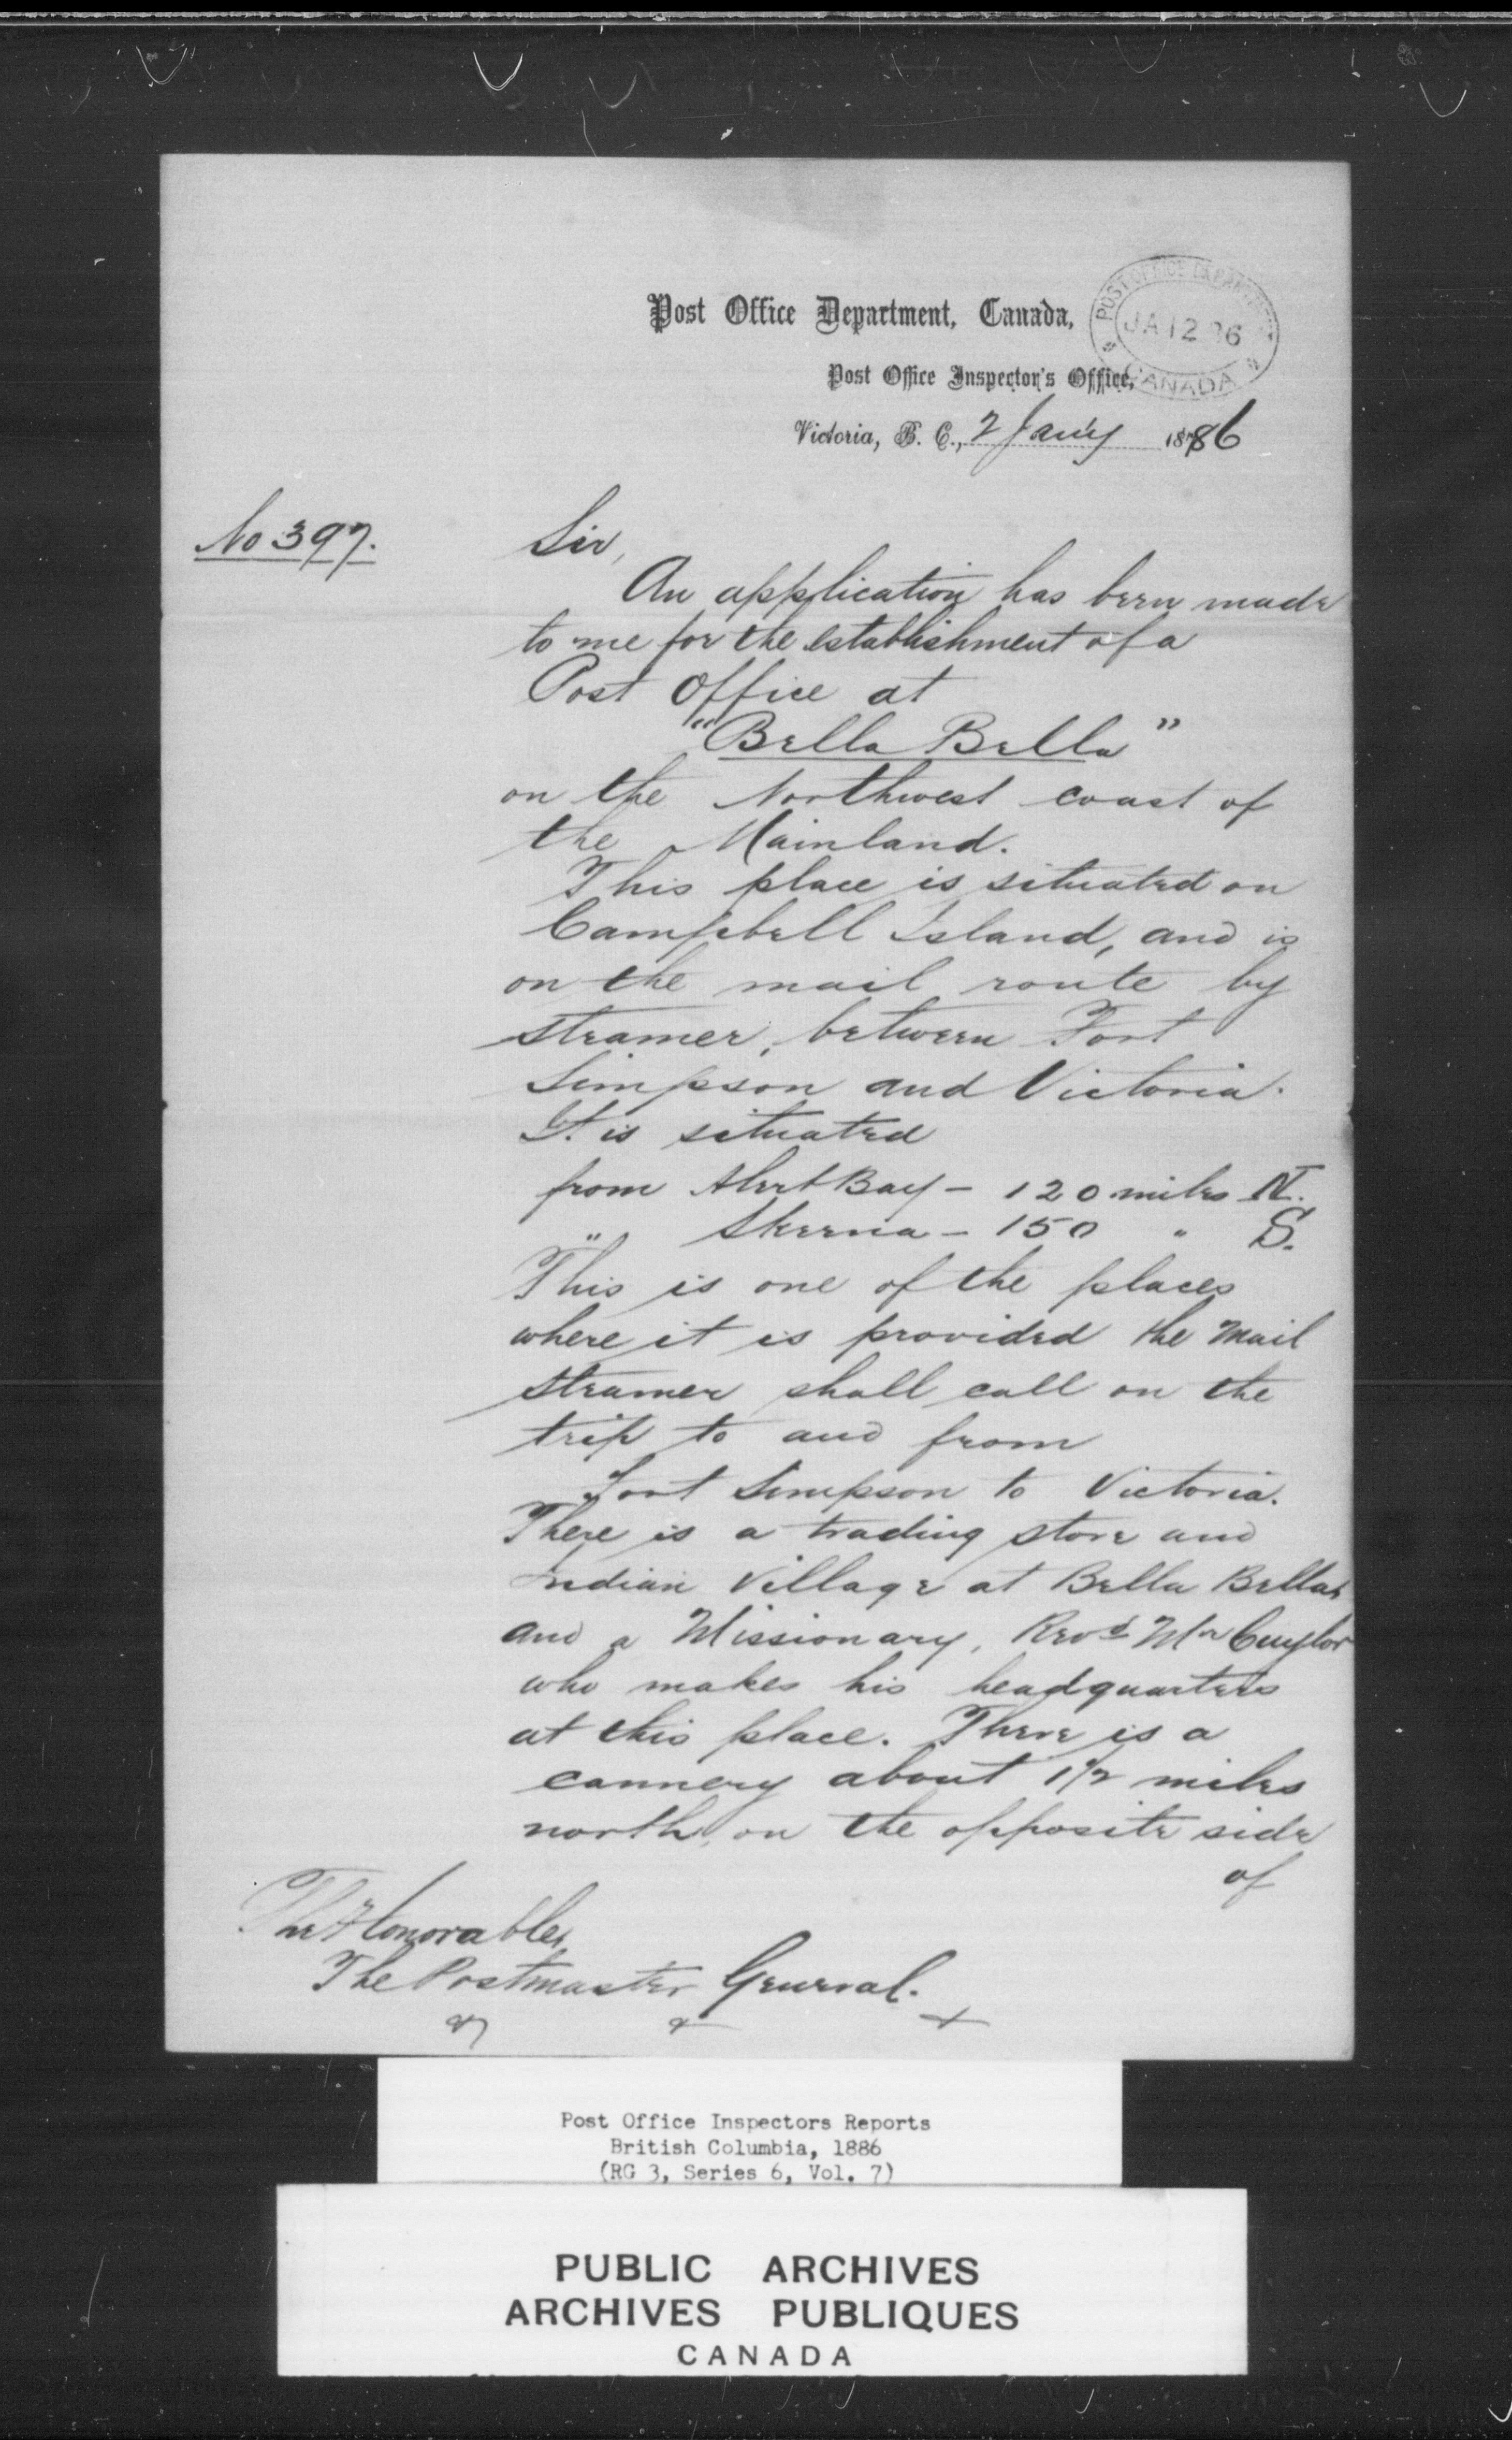 Post Office Department, Canada,
POST OFFICE DEPARTMENT
JA 12 86
CANADA
Post Office Inspector's Office,
Victoria, B. C., 2 Jan'y 1886
No 397.
Sir,
An application has been made
to me for the establishment of a
Post Office at
"Bella Bella"
on the Northwest coast of
the Mainland.
This place is situated on
Campbell Island, and is
on the mail route by
steamer, between Fort
Simpson and Victoria.
It is situated
from Alert Bay - 120 miles N.
" Skeena - 150 " S.
This is one of the places
where it is provided the Mail
Steamer shall call on the
trip to and from
Fort Simpson to Victoria.
There is a trading store and
Indian Village at Bella Bella
and a Missionary, Revd Mr Cuyler
who makes his headquarters
at this place. There is a
cannery about 1 1/2 miles
north, on the opposite side
of
The Honorable,
The Postmaster General.
Post Office Inspectors Reports
British Columbia, 1886
(RG 3, Series 6, Vol. 7)
PUBLIC ARCHIVES
ARCHIVES PUBLIQUES
CANADA